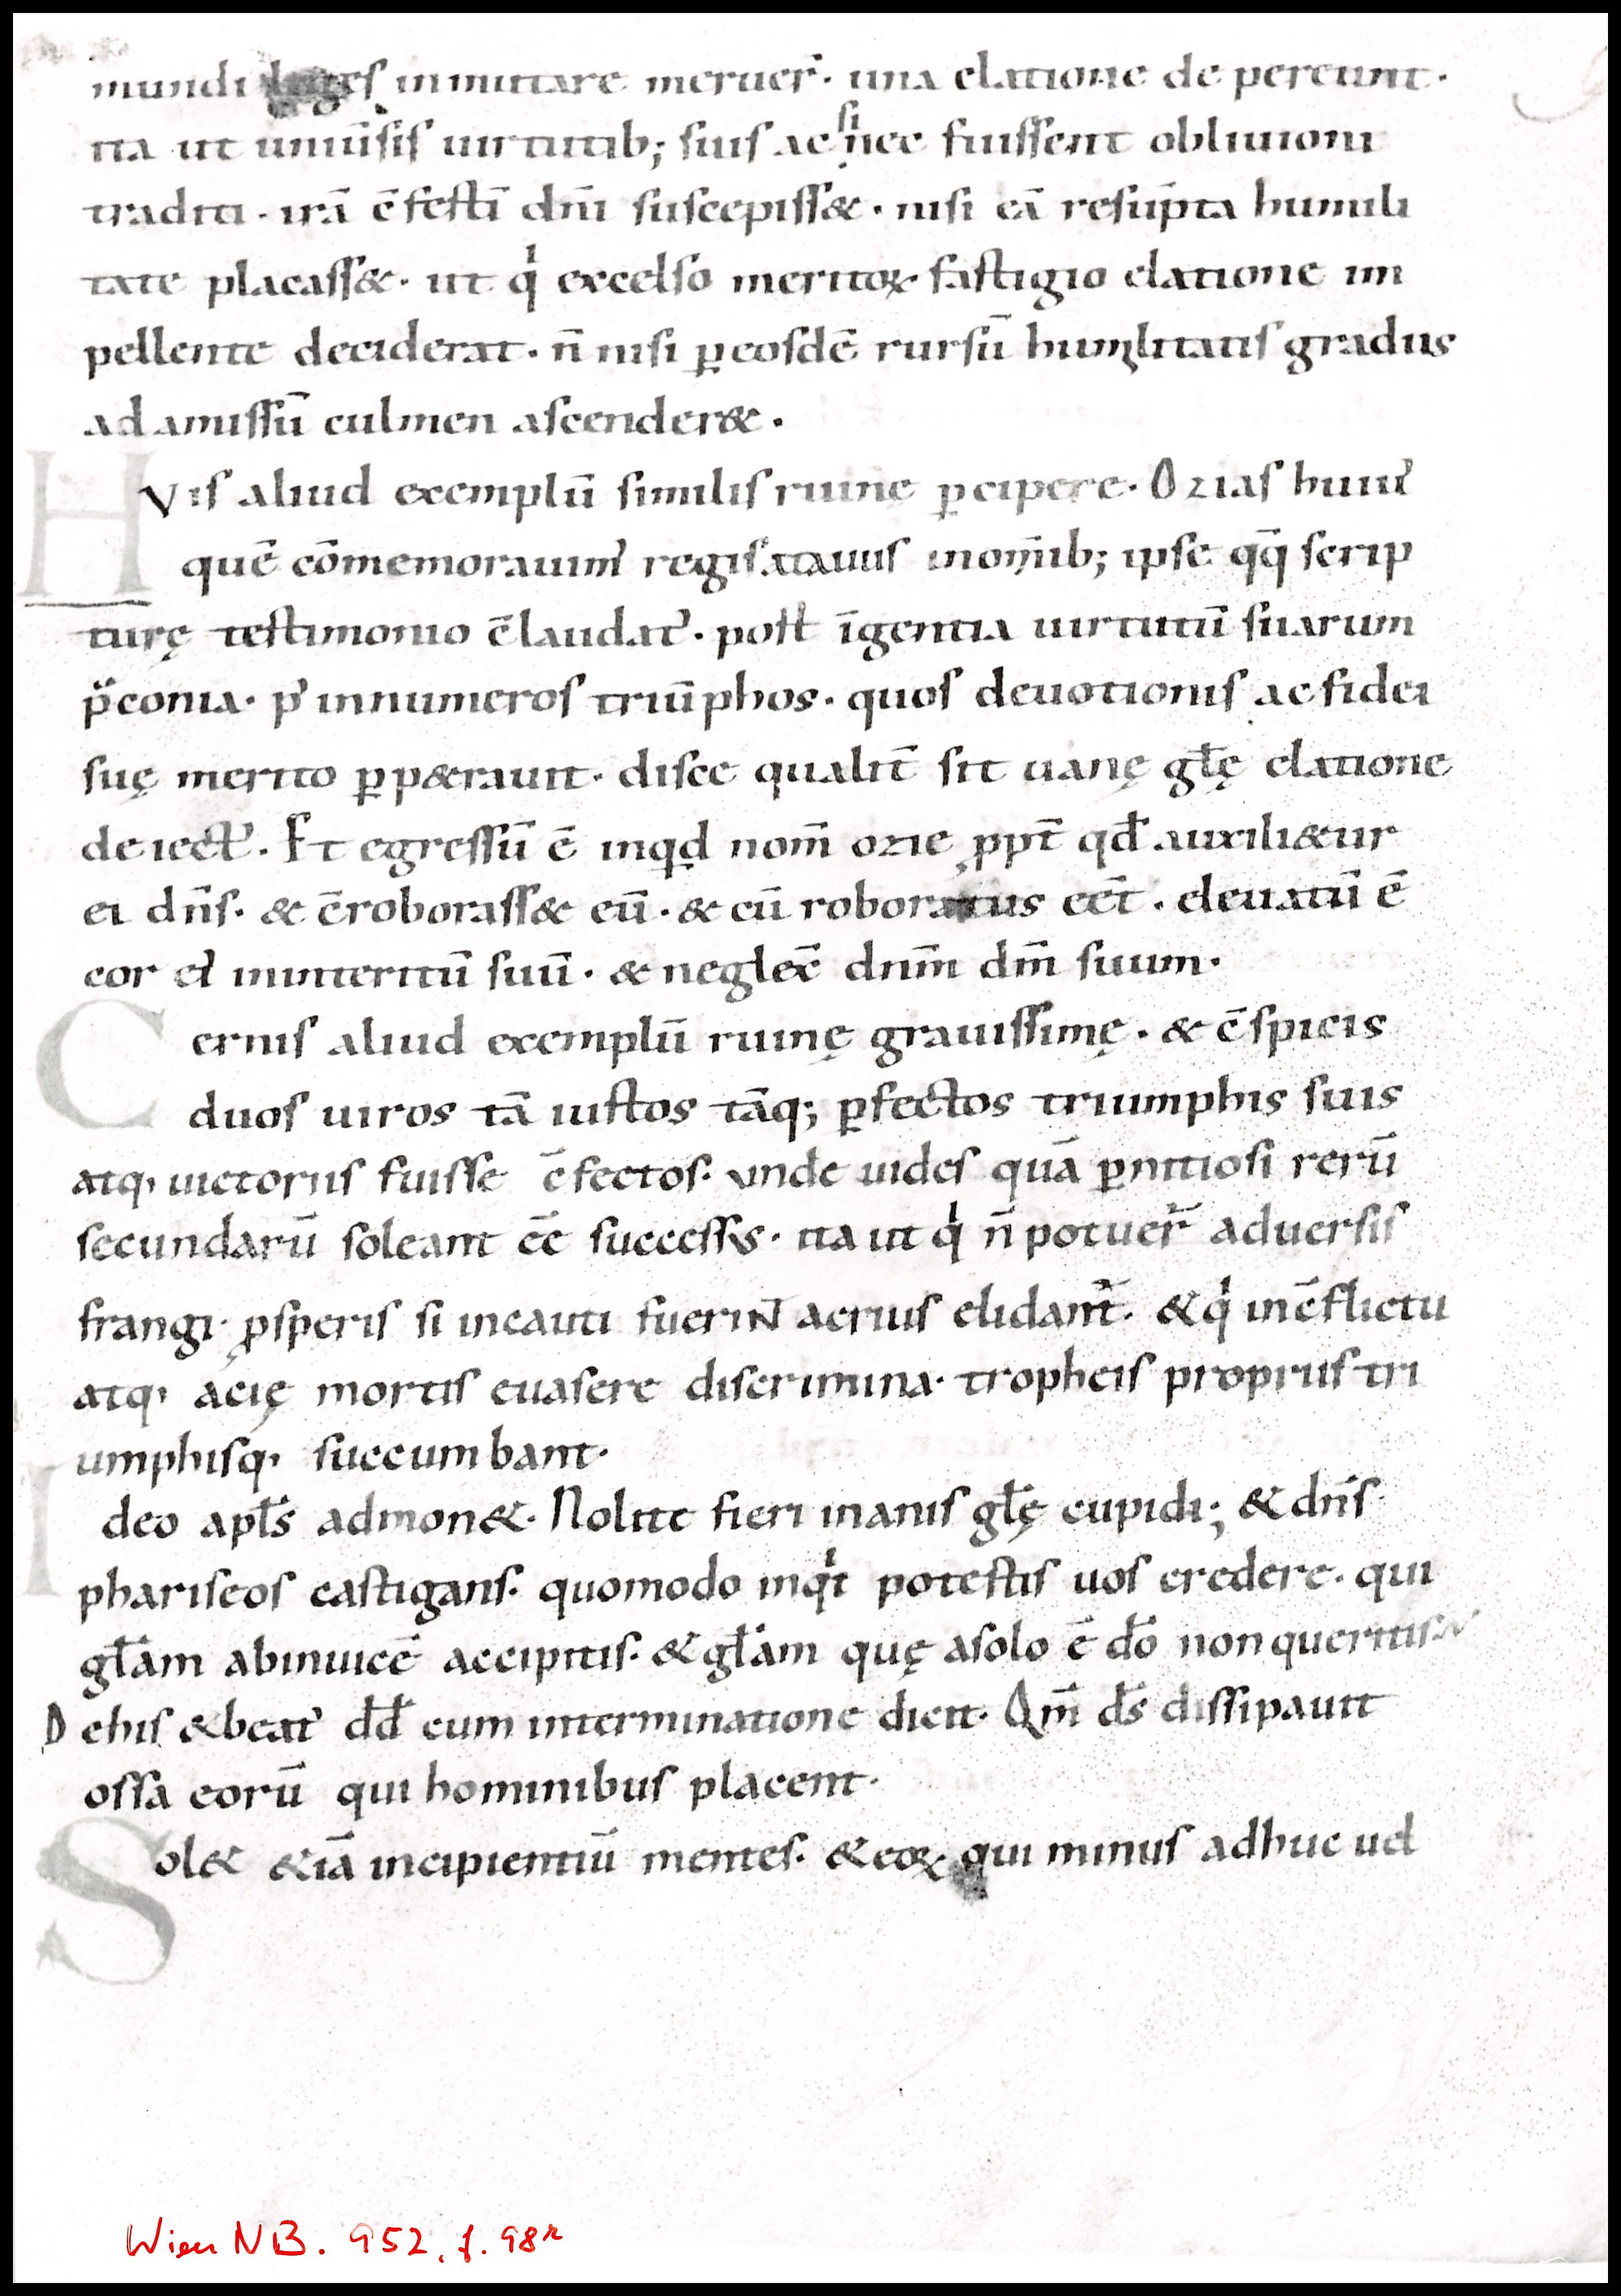 mundi leges inmutare meruer̄. una elatione depereunt.
ita ut uniu̅sis uirtutib; suis ac si nec fuissent obliuioni
traditi. irā c̄festī dn̄i suscepiss&. nisi eā resūpta humili
tate placass&. ut qi excelso meritoꝝ fastigio elatione im
pellente deciderat. n̄ nisi ꝑ eosdē rursū humilitatis gradus
ad amissū culmen ascender&.
HVis aliud exemplū similis ruine ꝑcipere. Ozias hui᾽
quē cōmemorauim᾽ regis atauus inom̄ib; ipse qq̄ scrip
turę testimonio c̄laudat᾽. post īgentia uirtutū suarum
p̄conia. p᾽ innumeros triūphos. quos deuotionis ac fidei
suę merito ꝑp&rauit. disce qualit̄ sit uanę gl̄ę elatione
deiect᾽. Et egressū ē inquid nom̄ ozie ꝓpt̄ qd̄ auxili&ur
ei dn̄s. & c̄roborass& eū. & cū roboratus eēt. eleuatū ē
cor ei᾽ ininteritū suū. & neglex̄ dn̄m dm̄ suum.
Cernis aliud exemplū ruinę grauissimę. & c̄spicis
duos uiros tā iustos tāq; ꝑfectos triumphis suis
atq, uictoriis fuisse c̄fectos. vnde uides quā ꝑnitiosi rerū
secundarū soleant eē successus. ita ut qi n̄ potuer̄ aduersis
frangi. ꝓsperis si incauti fuerint acrius elidant᾽. & qi in c̄flictu
atq, acię mortis euasere discrimina. tropheis propriis tri
umphisq, succumbant.
Ideo apl̄s admon&. Nolite fieri inanis gl̄ę cupidi; & dn̄s
phariseos castigans. quomodo inqit potestis uos credere. qui
gl̄am abinuicē accipitis. & gl̄am quę asolo ē dō non queritis
De his & beat᾽ dd̄ cum interminatione dicit. Qm̄ ds̄ dissipauit
ossa eorū qui hominibus placent.
Sol& &iā incipientiū mentes. & eoꝝ qui minus adhuc uel
Wien NB. 952, f. 98r